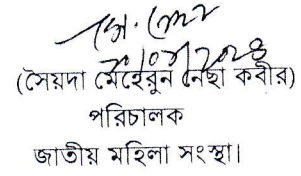 (সৈয়দা মেহেরুন নেছা কবীর)
পরিচালক
জাতীয় মহিলা সংস্থা।